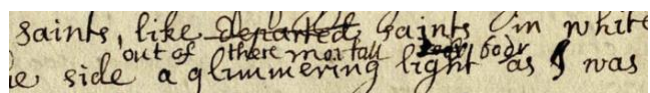 saints, like departed saints in white
out of there mortall body
e side a glimmering light as I was